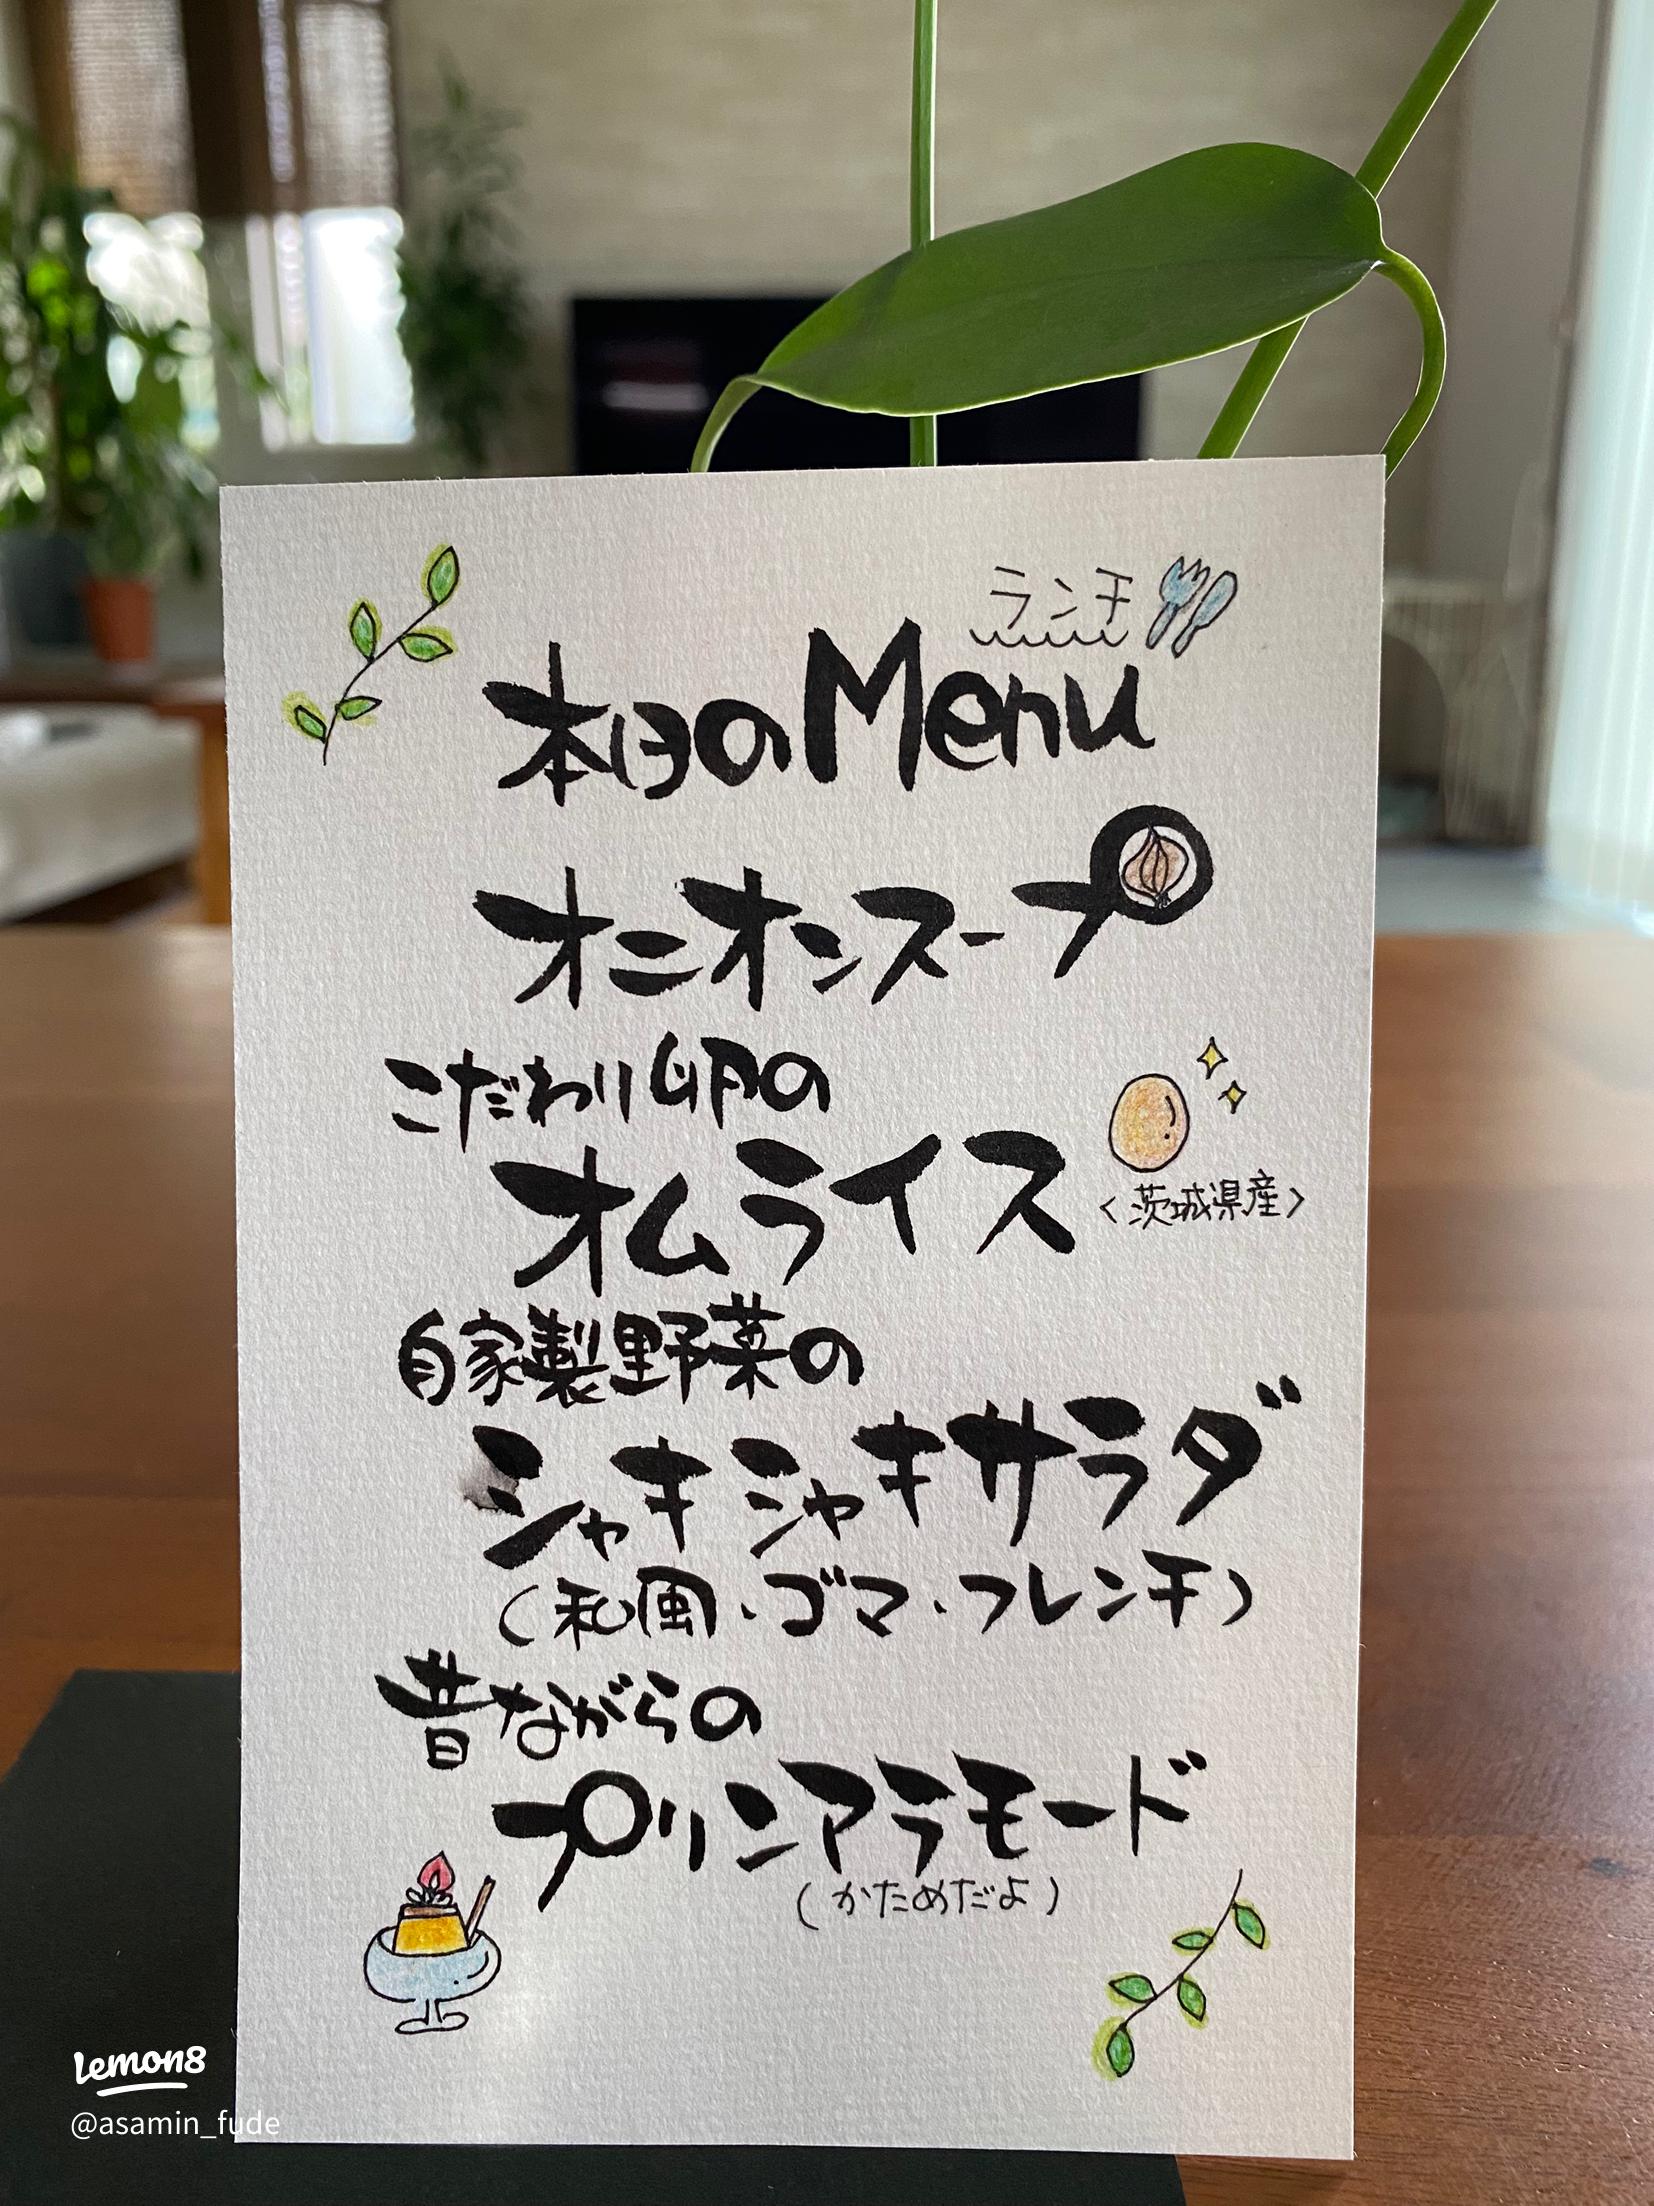 ランチ
本日のMenu
オニオンスープ
こだわり卵の
オムライス
<茨城県産>
自家製野菜の
シャキシャキサラダ
(和風・ゴマ・フレンチ)
昔ながらの
プリンアラモード
(かためだよ)
Lemon8
@asamin_fude